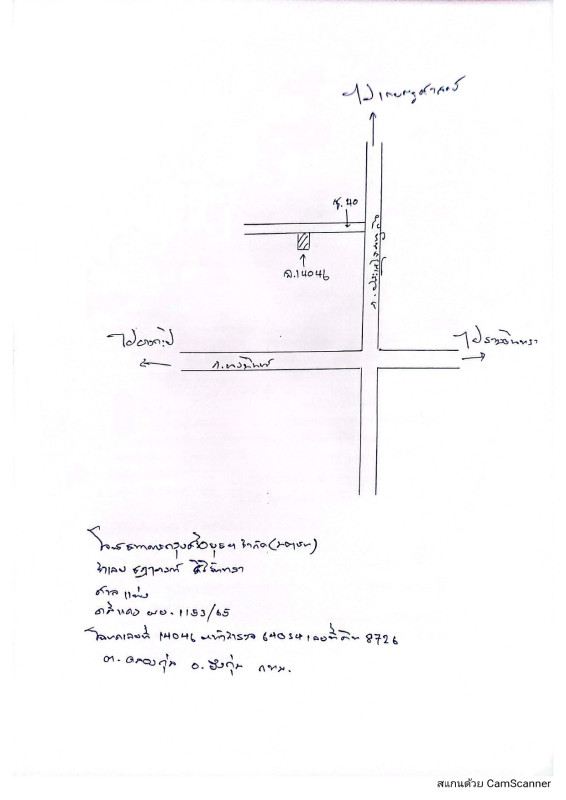 ไปเกษตรศาสตร์
ซ.40
ถ.ประเสริฐมนูกิจ
ฉ.14046
ไปรามอินทรา
ถ.นวมินทร์
โจทก์ ธนาคารกรุงศรีอยุธยา จำกัด (มหาชน)
จำเลย
ศาล แพ่ง
คดีแดง ผบ. 1153/65
โฉนดเลขที่ 14046 หน้าสำรวจ 64034 เลขที่ดิน 8726
ต. คลองกุ่ม อ. บึงกุ่ม กทม.
สแกนด้วย CamScanner